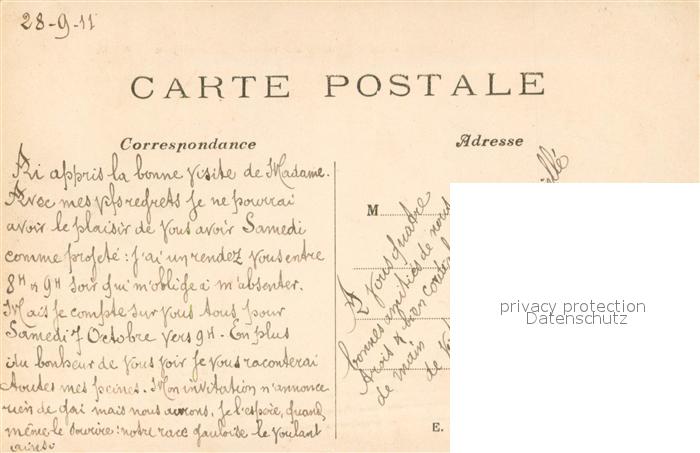 28-9-11
CARTE POSTALE
Correspondance
Adresse
Ai appris la bonne visite de Madame.
Avec mes vifs regrets je ne pourrai
avoir le plaisir de vous avoir Samedi
comme projeté : j'ai un rendez vous entre
8H & 9H soir qui m'oblige a m'absenter.
Mais je compte sur vous tous pour
Samedi 7 Octobre vers 9H - En plus
du bonheur de vous voir je vous raconterai
toutes mes peines. Mon invitation n'annonce
rien de gai mais nous aurons, je l'espère, quand
même le sourire : notre race gauloise le voulant
ainsi
M
A vous quatre
bonnes amitiés de nous
trois & bien
de main
de
E.
privacy protection
Datenschutz